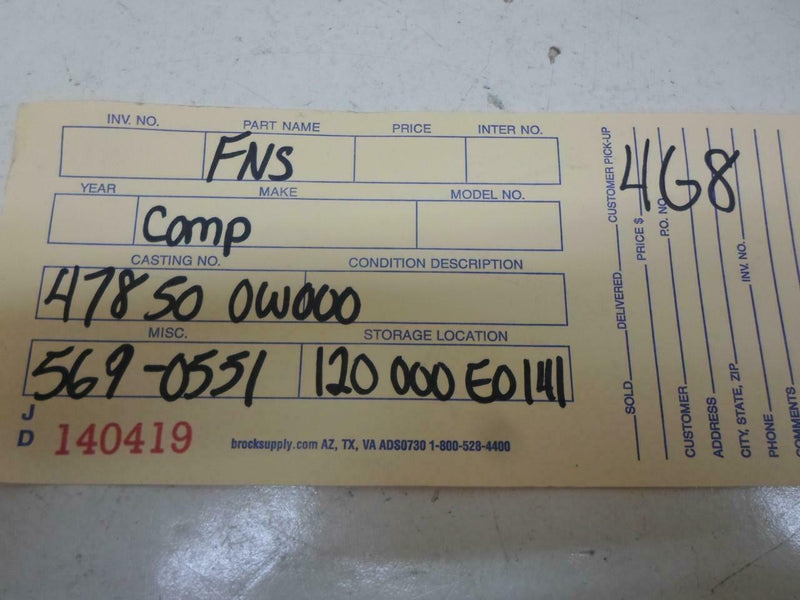 INV. NO. PART NAME PRICE INTER NO.
FNS
YEAR MAKE MODEL NO.
Comp
CASTING NO. CONDITION DESCRIPTION
47850 0W000
MISC. STORAGE LOCATION
569-0551 120 000 E0141
J
D 140419 brocksupply.com AZ, TX, VA ADS0730 1-800-528-4400
SOLD DELIVERED CUSTOMER PICK-UP
PRICE $
P.O. NO.
4G8
CUSTOMER
ADDRESS
CITY, STATE, ZIP INV. NO.
PHONE
COMMENTS